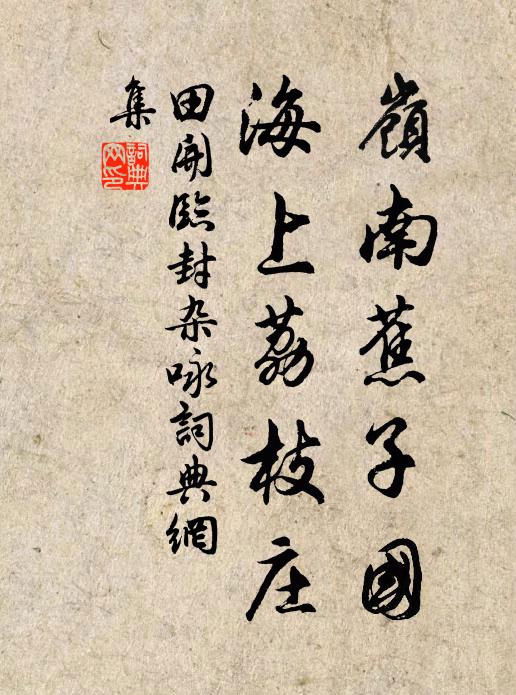 嶺南蕉子國
海上荔枝庄
田開臨封杂咏詞典網
集
詞典網印